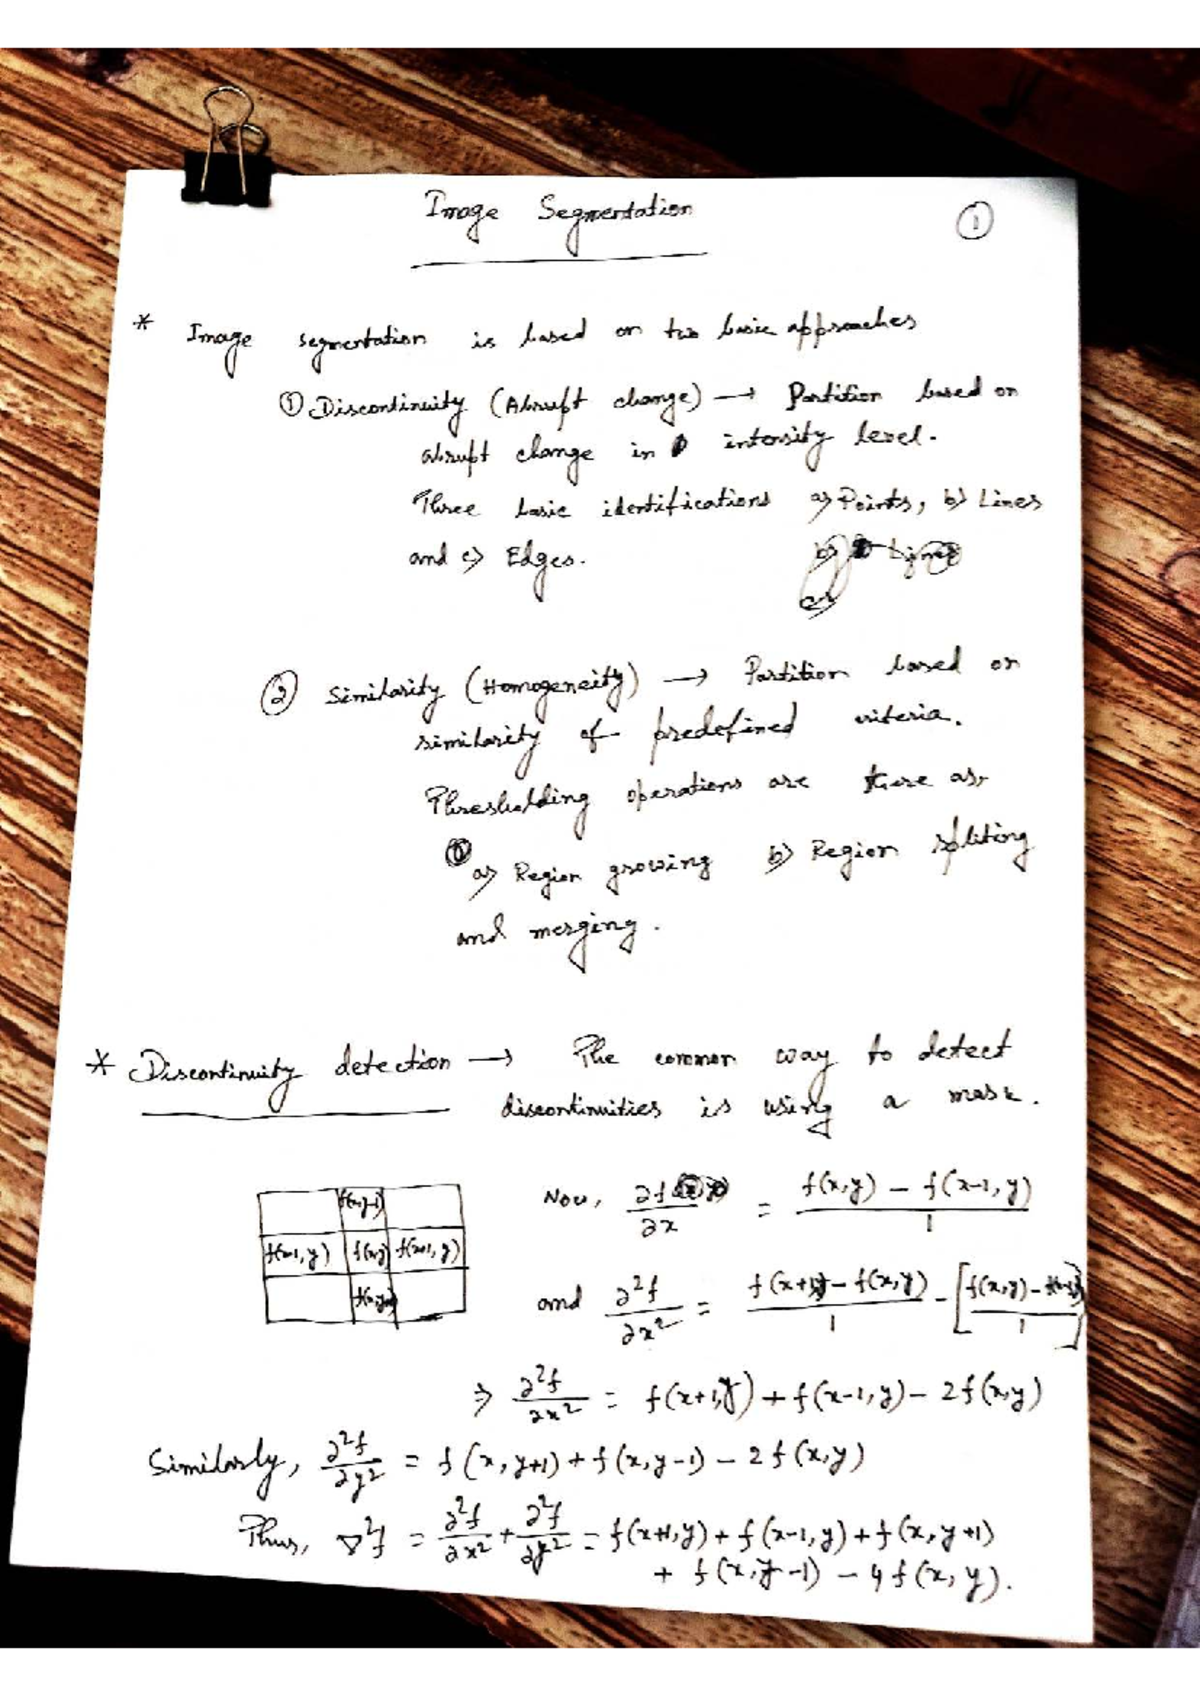 Image Segmentation
①
* Image segmentation is based on two basic approaches
① Discontinuity (Abrupt change) → Partition based on
abrupt change in intensity level.
Three basic identifications a) Points, b) Lines
and c) Edges.
② Similarity (Homogeneity) → Partition based on
similarity of predefined criteria.
Thresholding operations are there as,
a) Region growing b) Region spliting
and merging.
* Discontinuity detection → The common way to detect
discontinuities is using a mask.
f(x,y-1)
f(x-1,y) f(x,y) f(x+1,y)
Now, ∂f/∂x = (f(x,y) - f(x-1,y))/1
and ∂²f/∂x² = (f(x+1,y) - f(x,y))/1 - [(f(x,y) - f(x-1,y))/1]
⇒ ∂²f/∂x² = f(x+1,y) + f(x-1,y) - 2f(x,y)
Similarly, ∂²f/∂y² = f(x,y+1) + f(x,y-1) - 2f(x,y)
Thus, ∇²f = ∂²f/∂x² + ∂²f/∂y² = f(x+1,y) + f(x-1,y) + f(x,y+1)
+ f(x,y-1) - 4f(x,y).